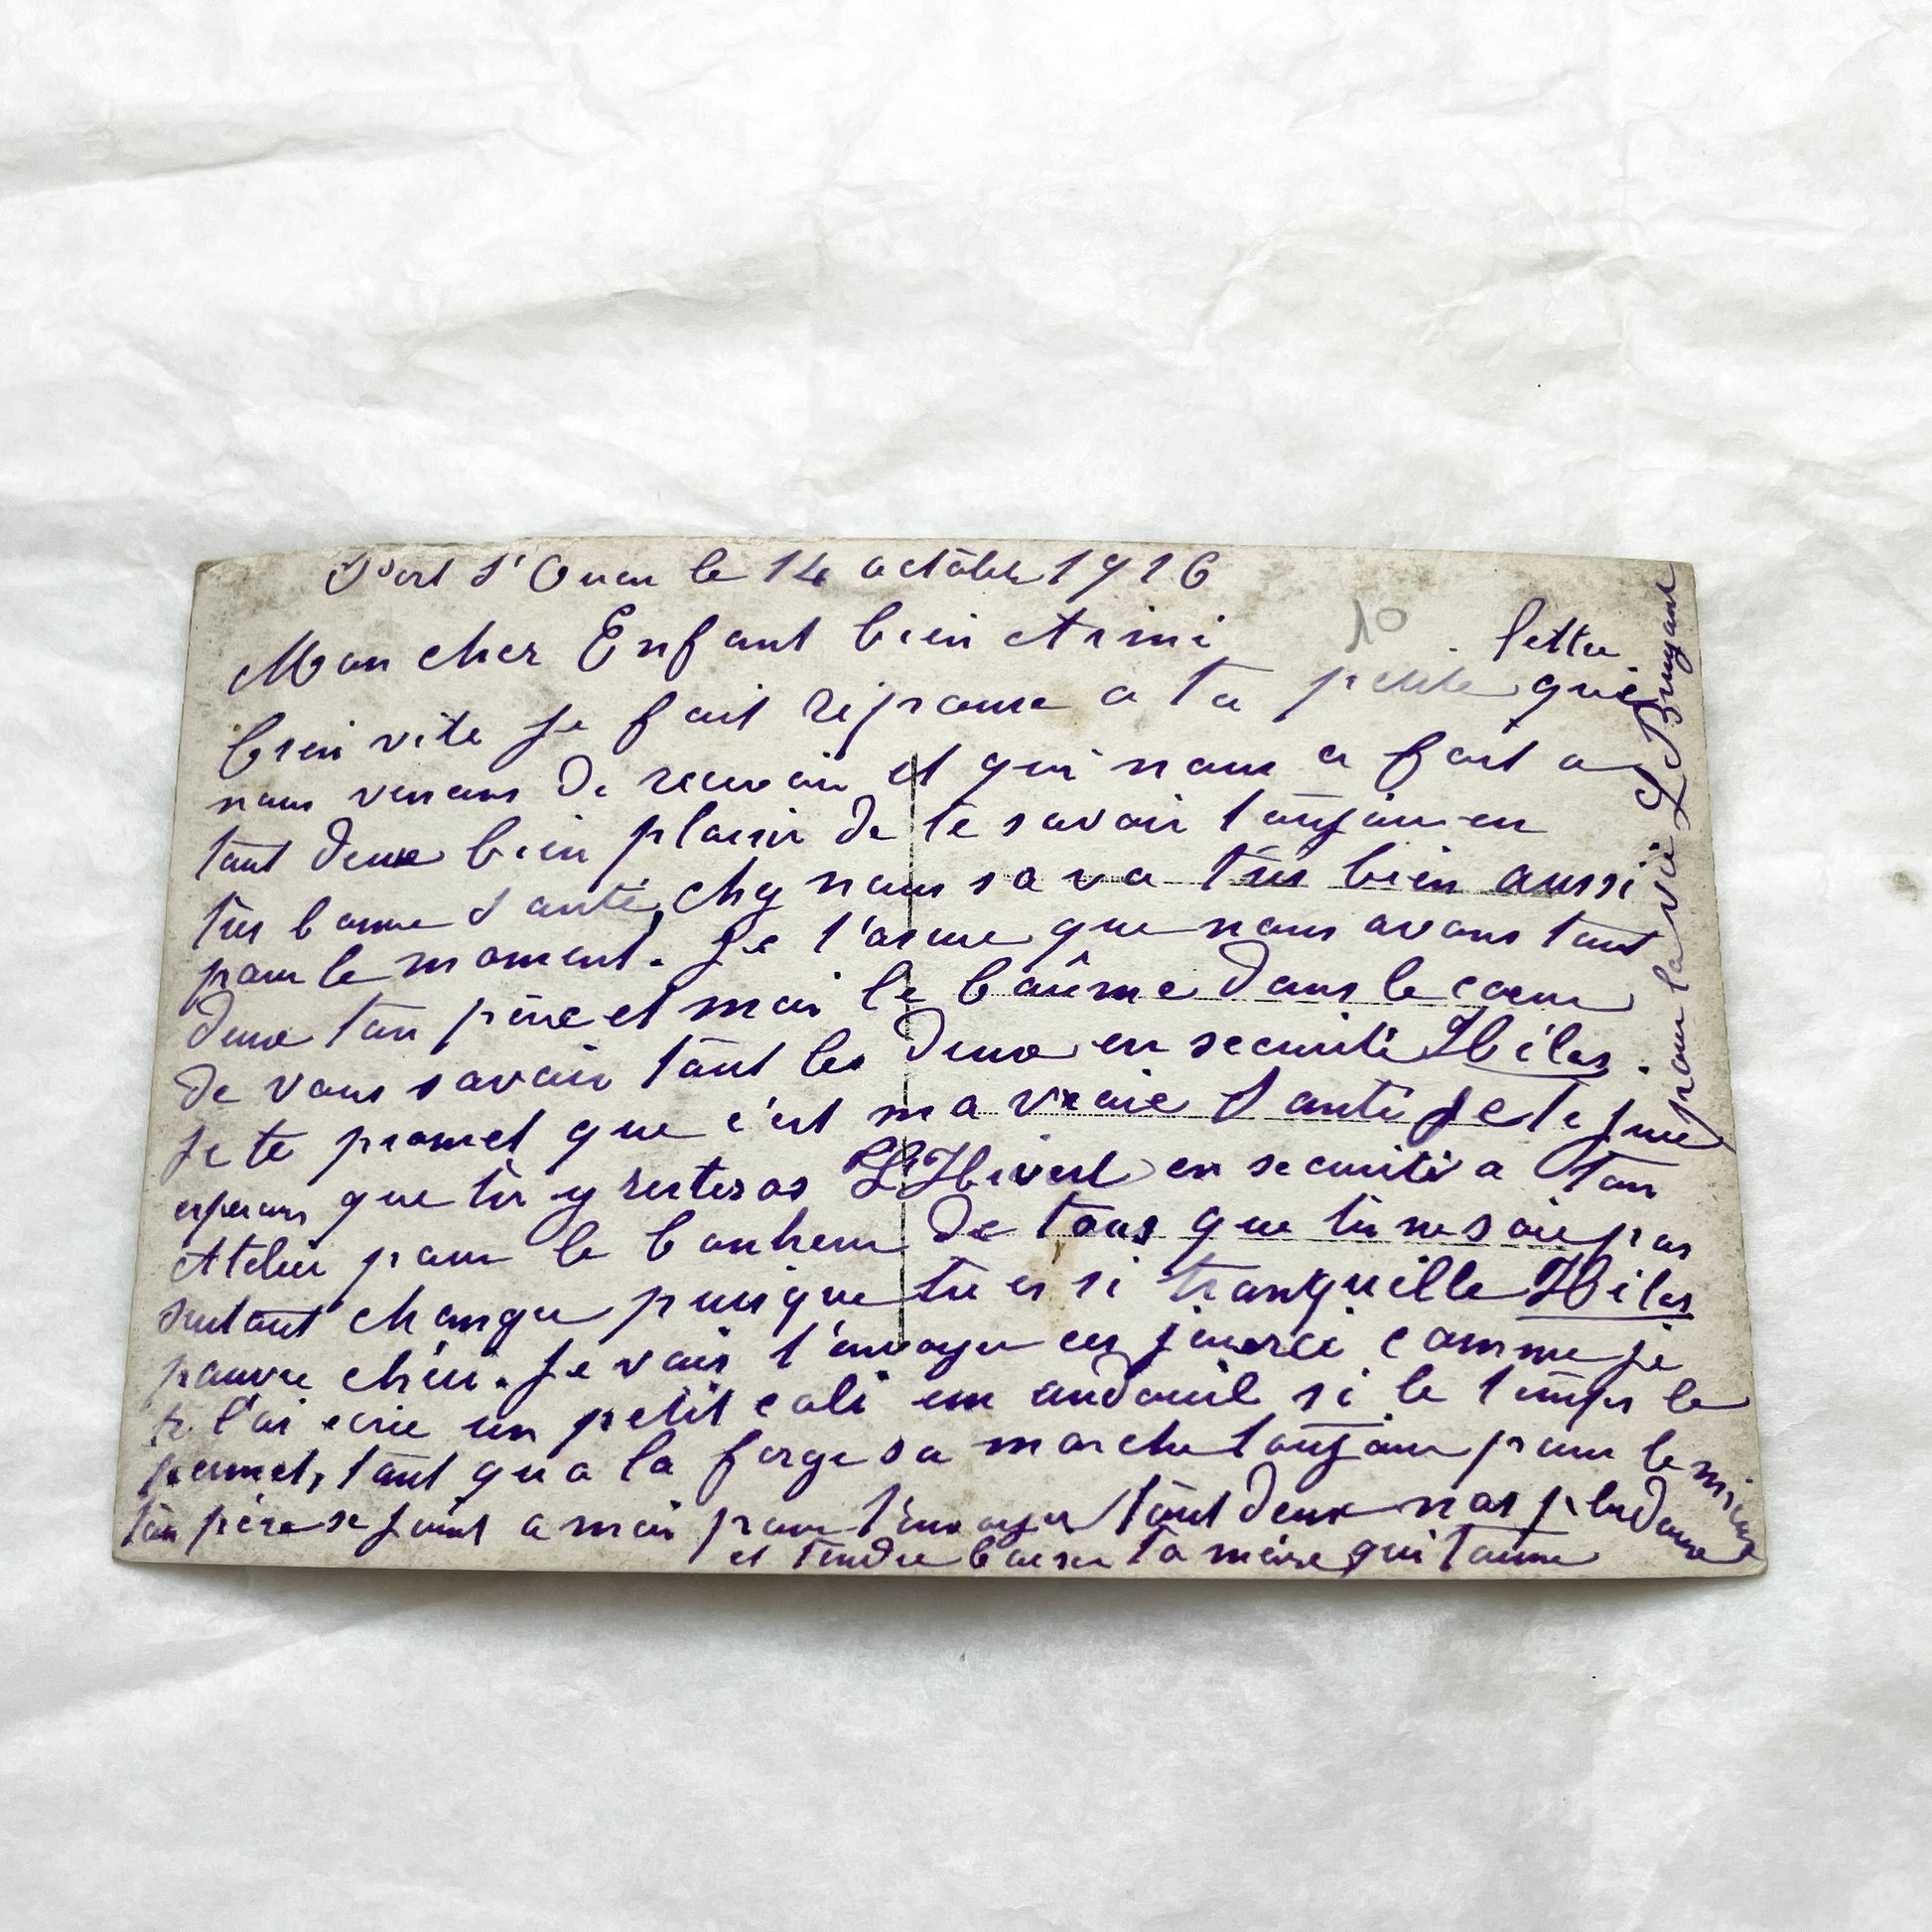 Port S' Ouen le 14 octobre 1916
10
Mon cher Enfant bien Aimé
lettre
bien vite je fait réponse a ta petite que
nous venons de recevoir et qui nous a fait a
tout deux bien plaisir de te savoir toujour en
très bonne santé, chez nous sa va très bien aussi
pour le moment. Je t'assure que nous avons tout
deux ton père et moi le baûme dans le coeur
de vous savoir tout les deux en securité Hélas.
je te promet que c'est ma vraie santé je te jure
esperons que tu y resteras L'Hivert en securité a ton
Atelier pour le bonheur de tous que tu ne soie pas
surtout changer puisque tu es si tranquille Hélas
pauvre chéri. Je vais t'envoyer ces jours ci comme je
te l'ai écrie un petit coli un andouil si le temps le
permet, tout qu a la forge sa marche toujour pour le mieux
ton père se joint a moi pour t'envoyer tout deux nos plus doux
et tendre baiser ta mère qui t'aime
pour la vie L. Bruyant